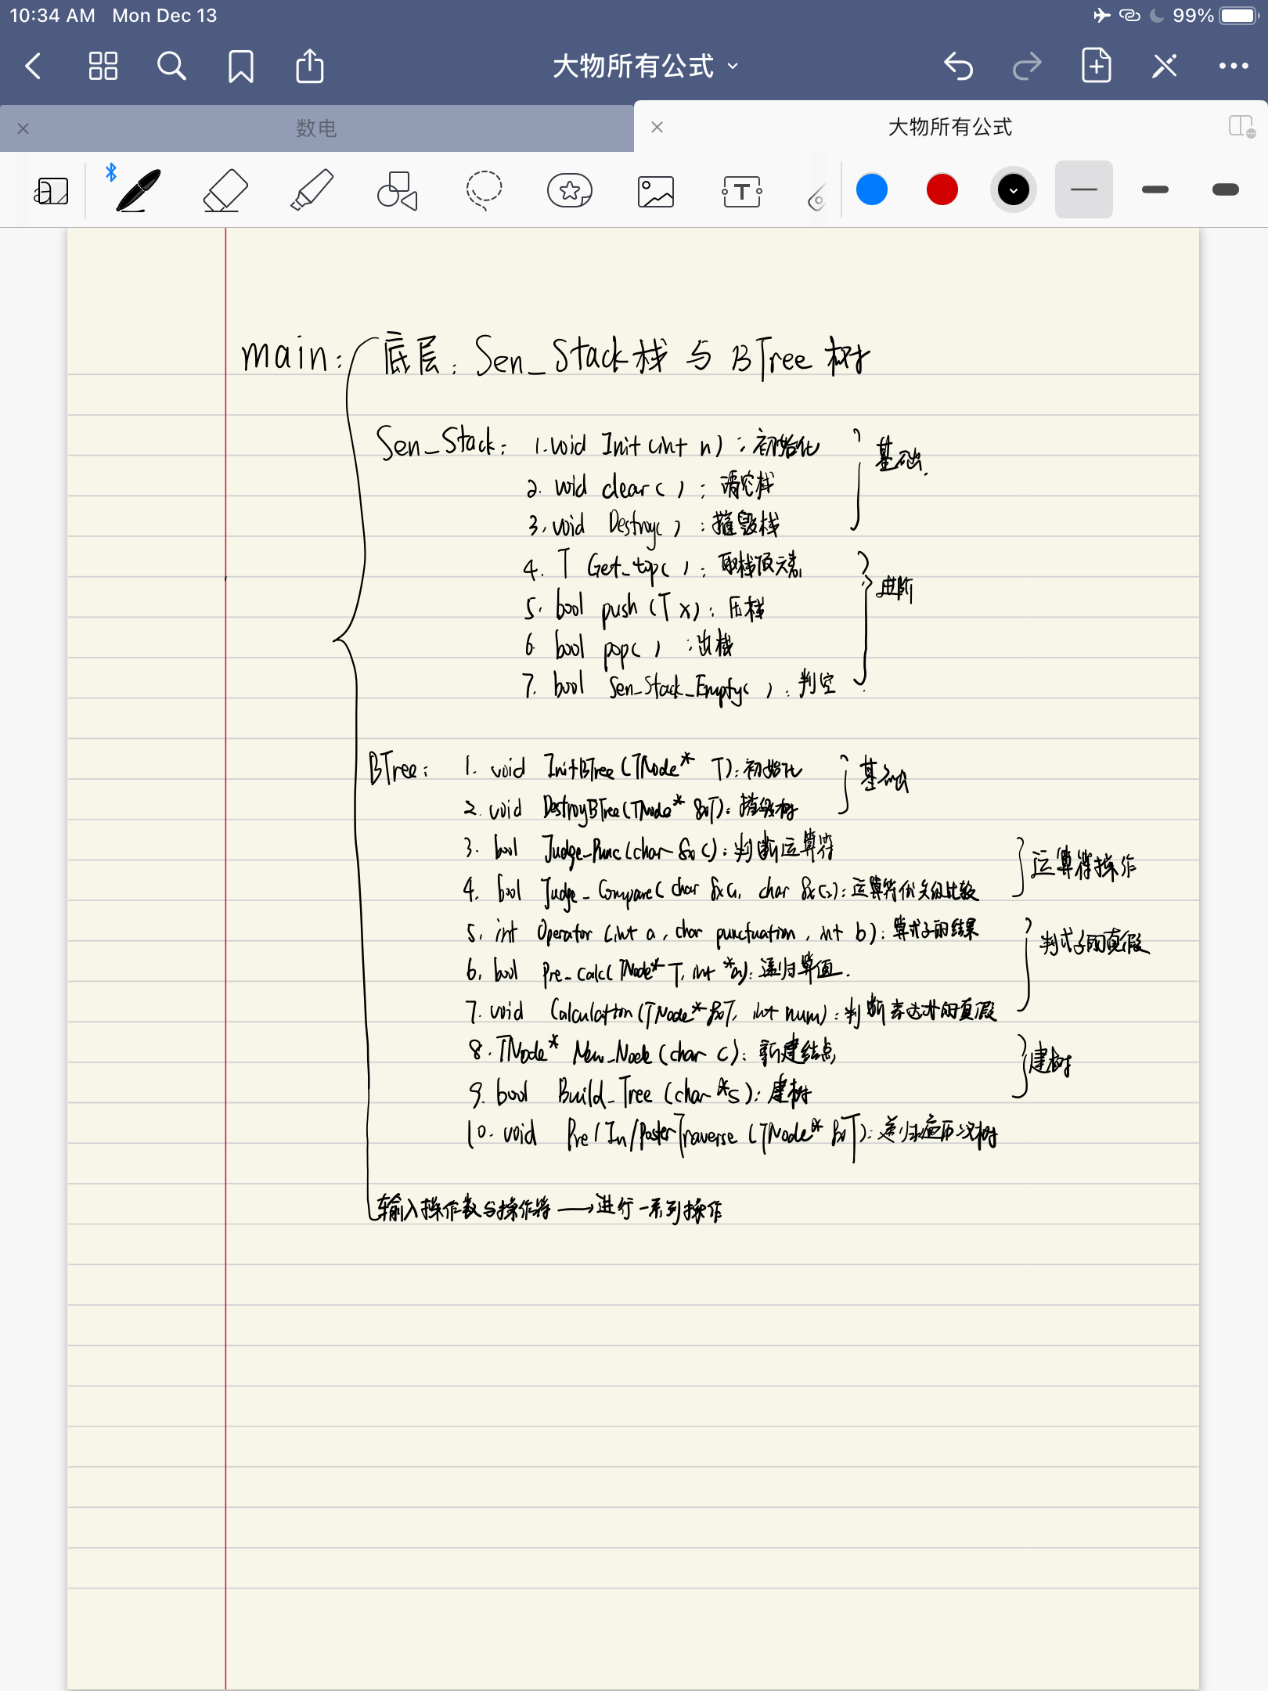 10:34 AM Mon Dec 13 99%
大物所有公式
数电 大物所有公式
main: 底层: Sen_Stack栈 与 BTree 树
Sen_Stack: 1.void Init(int n): 初始化
基础
2. void clear(): 清空栈
3. void Destroy(): 摧毁栈
4. T Get_top(): 取栈顶元素
进阶
5. bool push(T x): 压栈
6 bool pop() :出栈
7. bool Sen_Stack_Empty(): 判空
BTree: 1. void InitBTree(TNode* T): 初始化
基础
2. void DestroyBTree(TNode* &T): 摧毁树
3. bool Judge_Punc(char &c): 判断运算符
运算符操作
4. bool Judge_Compare(char &c1, char &c2): 运算符优先级比较
5. int Operator(int a, char punctuation, int b): 算式子的结果
判式子的真假
6. bool Pre_calc(TNode* T, int *a): 递归算值.
7. void Calculation(TNode* &T, int num): 判断表达式的真假
8. TNode* New_Node(char c): 新建结点
建树
9. bool Build_Tree(char *s): 建树
10. void Pre/In/PosterTraverse(TNode* &T): 递归遍历该树
输入操作数与操作符 → 进行一系列操作